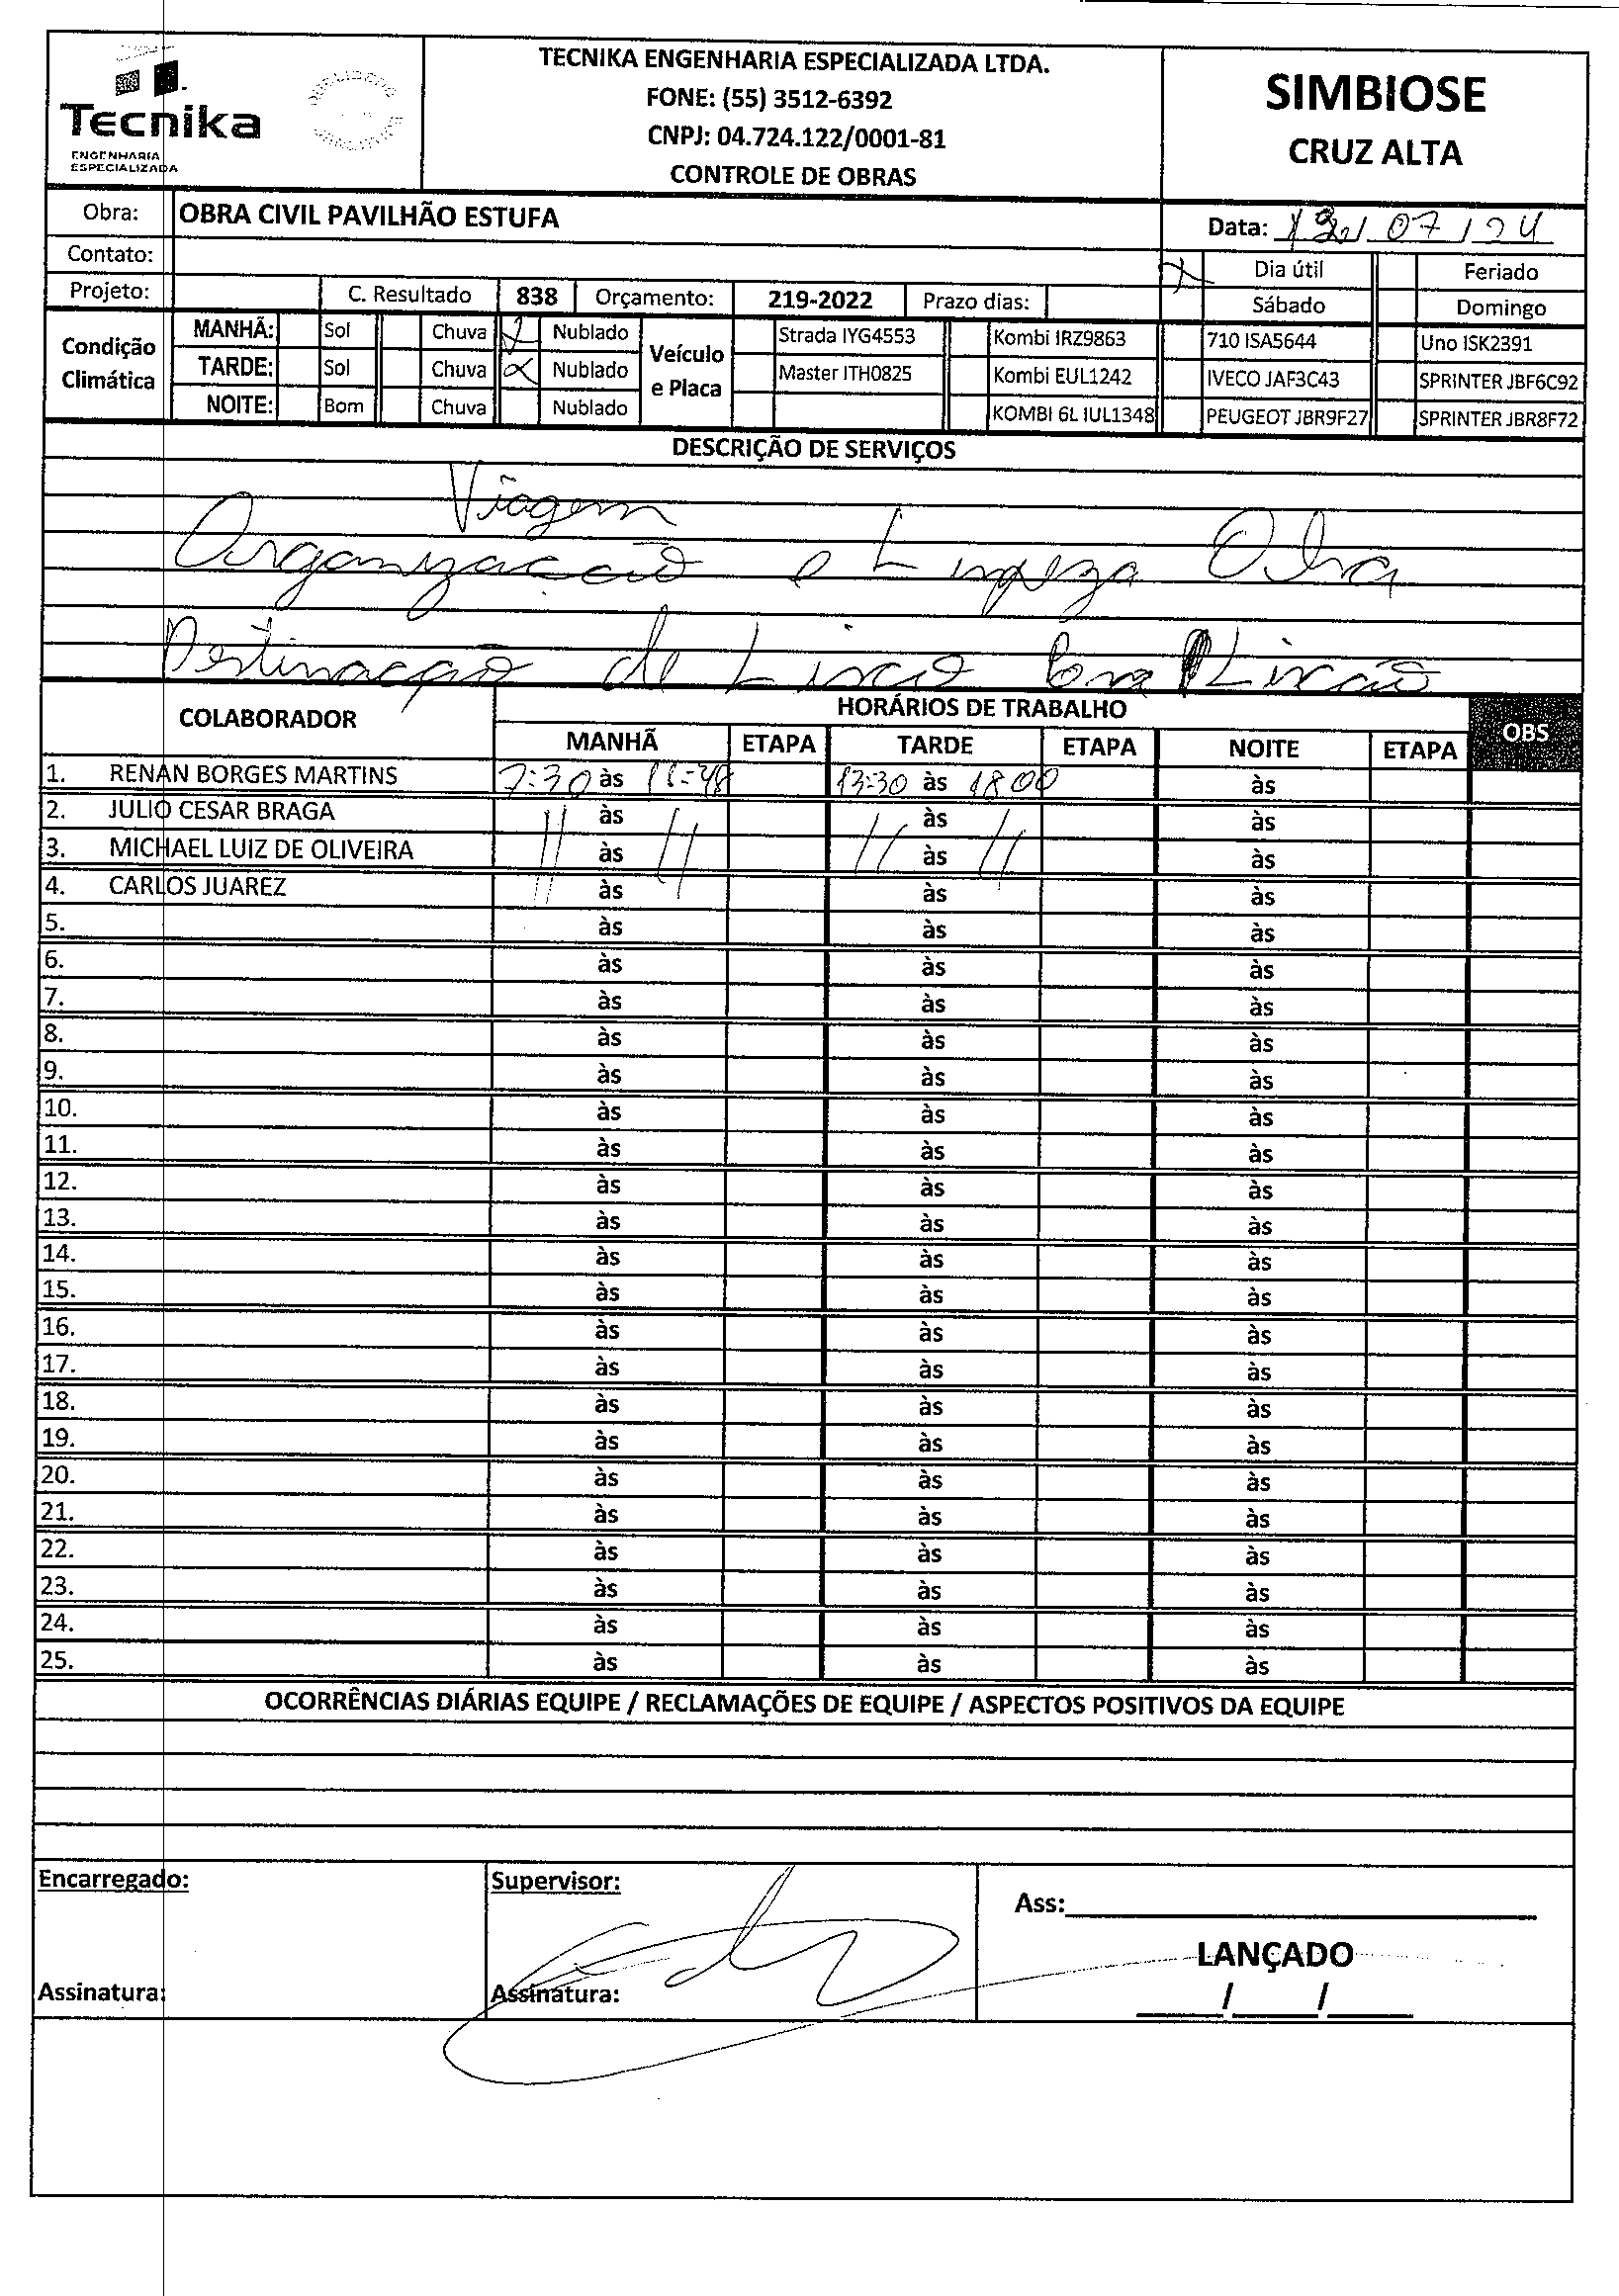 Tecnika
ENGENHARIA
ESPECIALIZADA
TECNIKA ENGENHARIA ESPECIALIZADA LTDA.
FONE: (55) 3512-6392
CNPJ: 04.724.122/0001-81
CONTROLE DE OBRAS
SIMBIOSE
CRUZ ALTA
Obra: OBRA CIVIL PAVILHÃO ESTUFA
Data: /07/24
Contato:
Dia útil Feriado
Projeto: C. Resultado 838 Orçamento: 219-2022 Prazo dias:
Sábado Domingo
Condição Climática
MANHÃ: Sol Chuva Nublado
TARDE: Sol Chuva Nublado
NOITE: Bom Chuva Nublado
Veículo e Placa
Strada IYG4553 Kombi IRZ9863 710 ISA5644 Uno ISK2391
Master ITH0825 Kombi EUL1242 IVECO JAF3C43 SPRINTER JBF6C92
KOMBI 6L IUL1348 PEUGEOT JBR9F27 SPRINTER JBR8F72
DESCRIÇÃO DE SERVIÇOS
Viagem
Organização e Limpeza Obra
Destinação de Lixo Lixão
COLABORADOR HORÁRIOS DE TRABALHO OBS
MANHÃ ETAPA TARDE ETAPA NOITE ETAPA
1. RENAN BORGES MARTINS 7:30 às 11:48 13:30 às 18:00 às
2. JULIO CESAR BRAGA às às às
3. MICHAEL LUIZ DE OLIVEIRA " às " " às " às
4. CARLOS JUAREZ às às às
5. às às às
6. às às às
7. às às às
8. às às às
9. às às às
10. às às às
11. às às às
12. às às às
13. às às às
14. às às às
15. às às às
16. às às às
17. às às às
18. às às às
19. às às às
20. às às às
21. às às às
22. às às às
23. às às às
24. às às às
25. às às às
OCORRÊNCIAS DIÁRIAS EQUIPE / RECLAMAÇÕES DE EQUIPE / ASPECTOS POSITIVOS DA EQUIPE
Encarregado: Supervisor:
Ass:
LANÇADO
Assinatura: Assinatura:
/ /